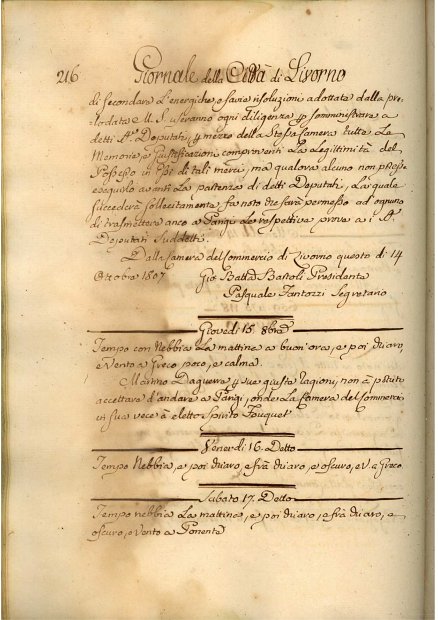 216 Giornale della Città di Livorno
di secondare l'energiche, e savie risoluzioni adottate dalla pre
lodata M. S. useranno ogni diligenza p somministrare a
detti Sri Deputati p mezzo della Stessa Camera tutte Le
Memorie, e Giustificazioni comprovanti La Legittimità del
Possesso in Essi di tali merci, ma qualora alcuno non potesse
eseguirlo avanti La partenza di detti Deputati, La quale
succederà sollecitamente, fa noto che sarà permesso ad ognuno
di trasmettere anco a Parigi Le respettive prove a i Sri
Deputati Suddetti.
Dalla Camera del Commercio di Livorno questo dì 14
Ottobre 1807
Gio Batta Bartoli Presidente
Pasquale Fantozzi Segretario
Giovedì 15. 8bre
Tempo con Nebbia La mattina a buon'ora, e poi chiaro,
e Vento a Greco, poco, e calma.
Marino Daguerra p sue giuste ragioni, non à potuto
accettare d'andare a Parigi, onde La Camera del Commercio
in sua vece à eletto Spirito Fouquet
Venerdì 16. Detto
Tempo Nebbia, e poi chiaro, e frà chiaro, e oscuro, e V. a Greco.
Sabato 17. Detto
Tempo nebbia La mattina, e poi chiaro, e frà chiaro, e
oscuro, e Vento a Ponente